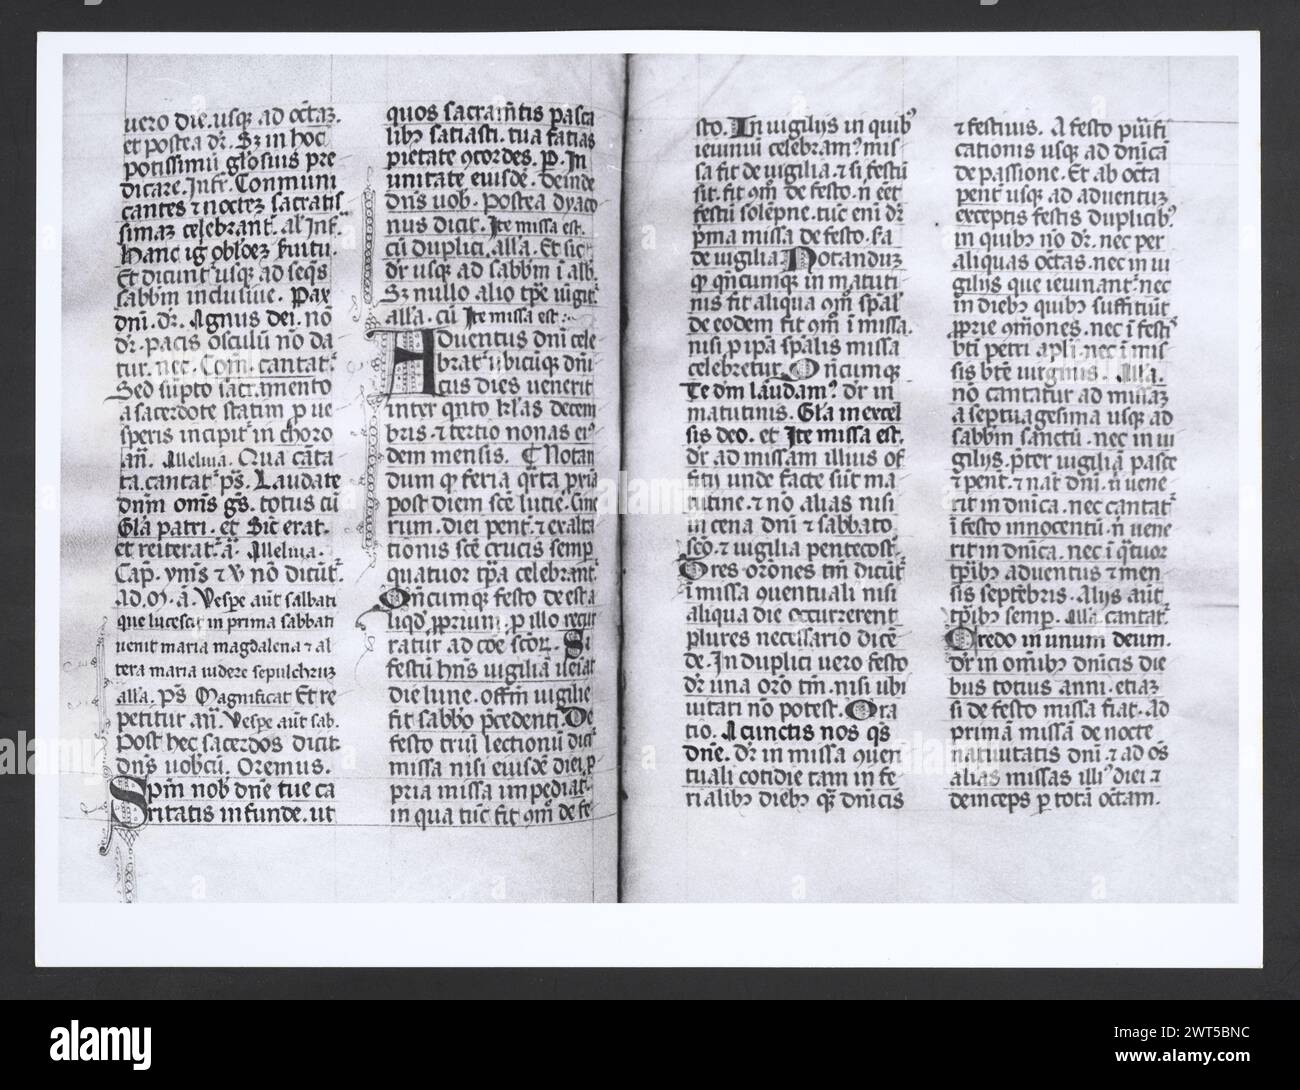 uero die. usq ad octaz.
et postea dr. Sz in hoc
potissimu glosius pre
dicare. Infr. Conmuni
cantes ⁊ noctez sacratis
simaz celebrant. al Infr.
Hanc ig obloez fruitu.
Et dicunt usq ad seqs
sabbm inclusiue. Pax
dni. dr. Agnus dei. no
dr. pacis osculu no da
tur. nec. Com cantat.
Sed supto sacramento
a sacerdote statim p ue
speris incipit in choro
an. Alleluia. Qua cata
ta. cantat ps. Laudate
dnm oms gs. totus cu
Gla patri. et Sic erat.
et reiterat a. Alleluia.
Cap. ymis ⁊ v no dicut.
ad. m. a. Vespe aut sabbati
que lucescit in prima sabbati
uenit maria magdalena ⁊ al
tera maria uidere sepulchruz
alla. ps Magnificat Et re
petitur an. Vespe aut sab.
Post hec sacerdos dicit
dns uobcu. Oremus.
Spm nob dne tue ca
ritatis infunde. ut
quos sacramtis pasca
lib satiasti. tua facias
pietate 9cordes. P. In
unitate eiusde. deinde
dns uob. Postea dyaco
nus dicit. Ite missa est.
cu duplici. alla. Et sic
dr usq ad sabbm i alb.
Sz nullo alio tpe iugit
alla. cu Ite missa est :.
Aduentus dni cele
brat ubicuq dni
cus dies uenerit
inter qnto klas decem
bris. ⁊ tertio nonas ei9
dem mensis. ¶ Notan
dum q feria qrta pria
post diem sce lucie. Cine
rum. diei pent. ⁊ exalta
tionis sce crucis semp
quatuor tpa celebrant.
Qncumq festo de est a
liqd pprium. p illo reqir
ratur ad coe scor. Si
festu hns uigilia ueiat
die lune. offm uigilie
fit sabbo pcedenti. De
festo triu lectionu dicit
missa nisi eiusde diei. p
pria missa impediat.
in qua tuc fit 9m de fe
sto. In uigilijs in quib9
ieiuniu celebram9 mis
sa fit de uigilia. ⁊ si festu
sit. fit 9m de festo. n eet
festu solepne. tuc eni dr
pma missa de festo. sa
de uigilia Notanduz
q qncumq in matuti
nis fit aliqua 9m spal
de eodem fit 9m i missa.
nisi p ipa spalis missa
celebretur. Qncumq
Te dm laudam9 dr in
matutinis. Gla in excel
sis deo. et Ite missa est.
dr ad missam illius of
fitij unde facte sut ma
tutine. ⁊ no alias nisi
in cena dni ⁊ sabbato
sco. ⁊ uigilia pentecost.
Tres orones tm dicut
i missa quentuali nisi
aliqua die occurrerent
plures necessario dice
de. In duplici uero festo
dr una oro tm. nisi ubi
uitari no potest. Ora
tio. A cunctis nos qs
dne. dr in missa quen
tuali cotidie tam in fe
rialib dieb q dnicis
⁊ festiuis. A festo purifi
cationis usq ad dnica
de passione. Et ab octa
pent usq ad aduentuz
exceptis festis duplicib9
in quib no dr. nec per
aliquas octas. nec in ui
gilijs que ieiunant. nec
in dieb quib suffitiut
pprie 9mones. nec i festi
bti petri apli. nec i mis
sis bte uirginis. Alla.
no cantatur ad missaz
a septuagesima usq ad
sabbm sanctu. nec in ui
gilijs. pter uigilia pasce
⁊ pent. ⁊ nat dni. n uene
rit in dnica. nec cantat
i festo innocentu. n uene
rit in dnica. nec i qtuor
tpib aduentus ⁊ men
sis septebris. Alijs aut
tpib semp. alla cantat.
Credo in unum deum.
dr in omib dnicis die
bus totius anni. etiaz
si de festo missa fiat. ad
primā missā de nocte
natiuitatis dni. ⁊ ad os
alias missas illi9 diei ⁊
deinceps p totā octam.
alamy
Image ID: 2WT5BNC
www.alamy.com